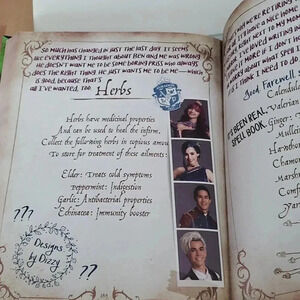 SO MUCH HAS CHANGED IN JUST THE LAST DAY. IT SEEMS
LIKE EVERYTHING I THOUGHT ABOUT BEN AND ME WAS WRONG.
HE DOESN'T WANT ME TO BE SOME BORING PRISS WHO ALWAYS
DOES THE RIGHT THING. HE JUST WANTS ME TO BE ME—WHICH
IS GOOD, BECAUSE THAT'S
ALL I'VE WANTED, TOO.
Herbs
Herbs have medicinal properties
And can be used to heal the infirm,
Collect the following herbs in copious amounts
To store for treatment of these ailments:
Elder: Treats cold symptoms
Peppermint: Indigestion
Garlic: Antibacterial properties
Echinacea: Immunity booster
???
Designs
by Dizzy
??
WERE RETIRING
NEXT
LOVED WRITING
MORE IF I DON'T
AS IF THE SPELL
I NEED TO DO.
Good Farewell
T BEEN REAL,
SPELL BOOK.
Calendula
Valerian
Ginger:
Mull
Hawthorn
Cham
Marsh
Com